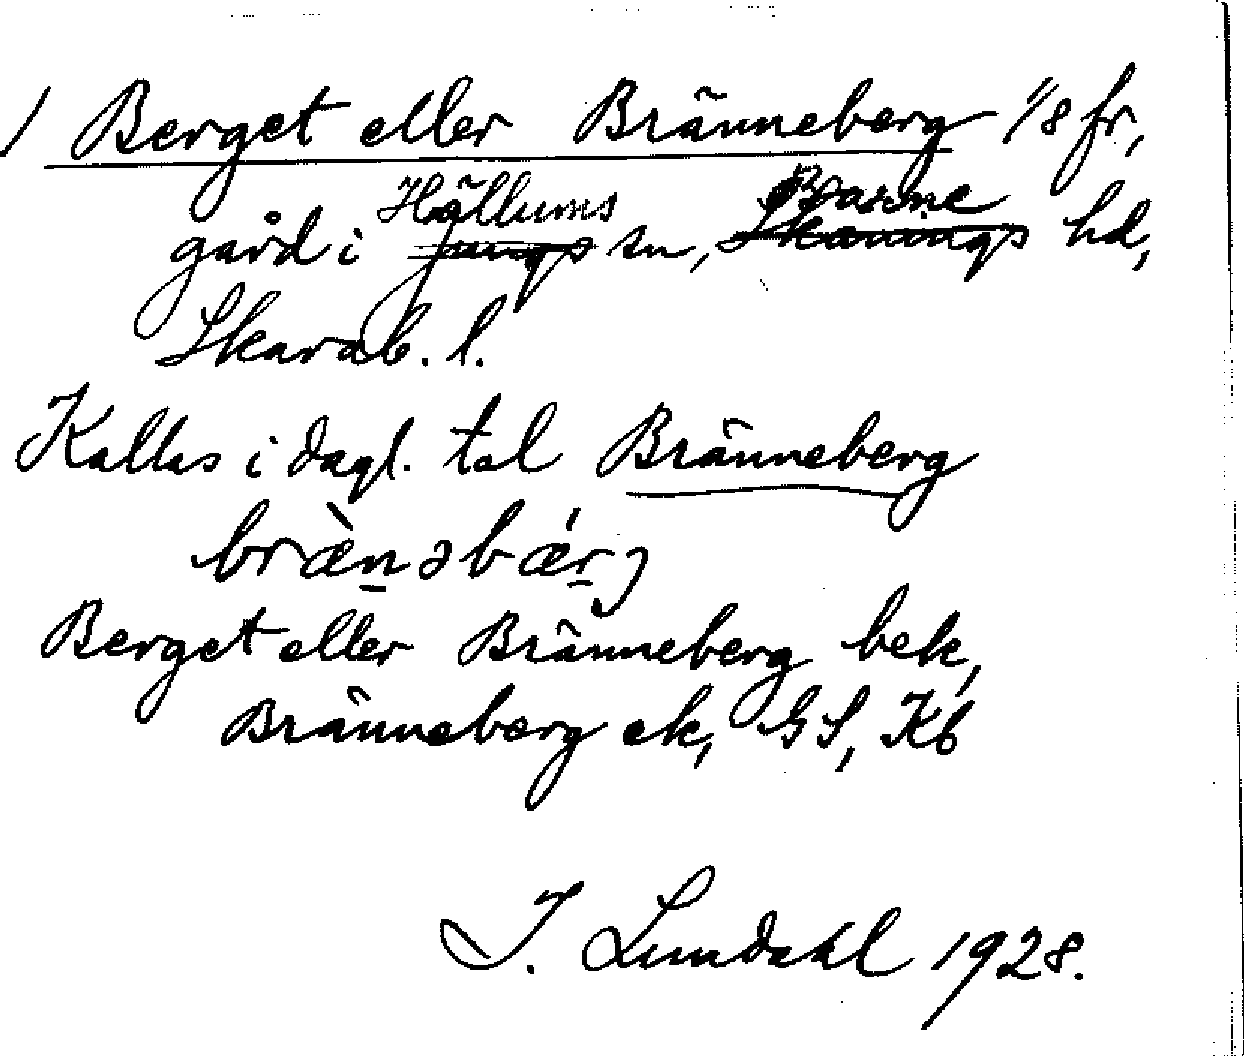 / Berget eller Bränneberg 1/8 fr,
Hällums Barne
gård i Jungs sn, Skånings hd,
Skarab. l.
Kallas i dagl. tal Bränneberg
bræ̀nəbǽrj
Berget eller Bränneberg bek,
Bränneberg ek, GS, Kb
I. Lundahl 1928.